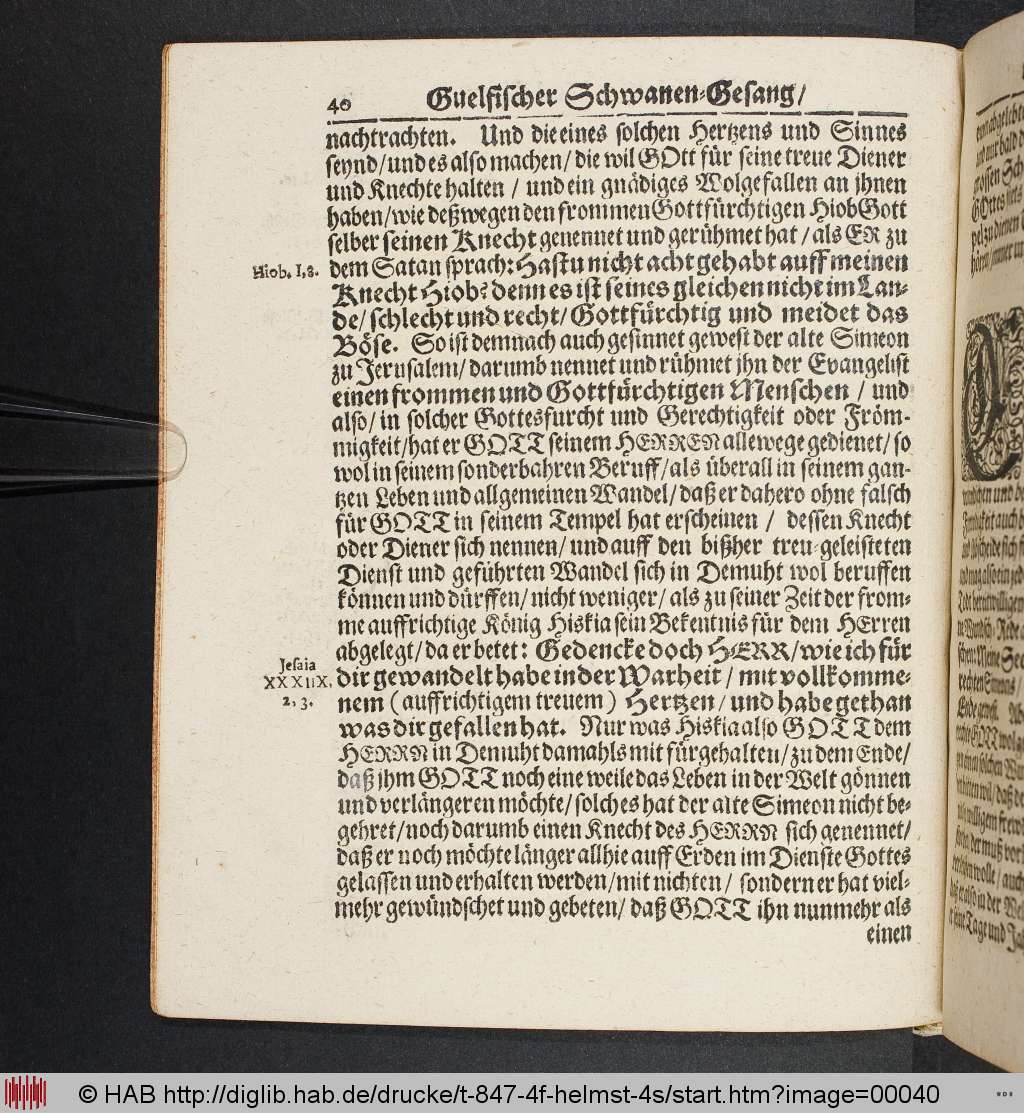 40 Guelfischer Schwanen-Gesang/
nachtrachten. Und die eines solchen Hertzens und Sinnes
seynd/ und es also machen/ die wil GOtt für seine treue Diener
und Knechte halten / und ein gnädiges Wolgefallen an jhnen
haben/ wie deßwegen den frommen Gottfürchtigen Hiob Gott
selber seinen Knecht genennet und gerühmet hat / als ER zu
Hiob. I, 8.
dem Satan sprach: Hastu nicht acht gehabt auff meinen
Knecht Hiob? denn es ist seines gleichen nicht im Lan-
de/ schlecht und recht/ Gottfürchtig und meidet das
Böse. So ist demnach auch gesinnet gewest der alte Simeon
zu Jerusalem/ darumb nennet und rühmet jhn der Evangelist
einen frommen und Gottfürchtigen Menschen / und
also/ in solcher Gottesfurcht und Gerechtigkeit oder Fröm-
migkeit/ hat er GOTT seinem HERREN allewege gedienet/ so
wol in seinem sonderbahren Beruff/ als überall in seinem gan-
tzen Leben und allgemeinen Wandel/ daß er dahero ohne falsch
für GOTT in seinem Tempel hat erscheinen / dessen Knecht
oder Diener sich nennen/ und auff den bißher treu-geleisteten
Dienst und geführten Wandel sich in Demuht wol beruffen
können und dürffen/ nicht weniger/ als zu seiner Zeit der from-
me auffrichtige König Hiskia sein Bekentnis für dem HErren
abgelegt/ da er betet: Gedencke doch HERR/ wie ich für
Jesaia
XXXIIX,
2, 3.
dir gewandelt habe in der Warheit / mit vollkomme-
nem (auffrichtigem treuem) Hertzen/ und habe gethan
was dir gefallen hat. Nur was Hiskia also GOTT dem
HERRN in Demuht damahls mit fürgehalten/ zu dem Ende/
daß jhm GOTT noch eine weile das Leben in der Welt gönnen
und verlängeren möchte/ solches hat der alte Simeon nicht be-
gehret/ noch darumb einen Knecht des HERRN sich genennet/
daß er noch möchte länger allhie auff Erden im Dienste Gottes
gelassen und erhalten werden/ mit nichten / sondern er hat viel-
mehr gewündschet und gebeten/ daß GOTT ihn nunmehr als
einen
© HAB http://diglib.hab.de/drucke/t-847-4f-helmst-4s/start.htm?image=00040